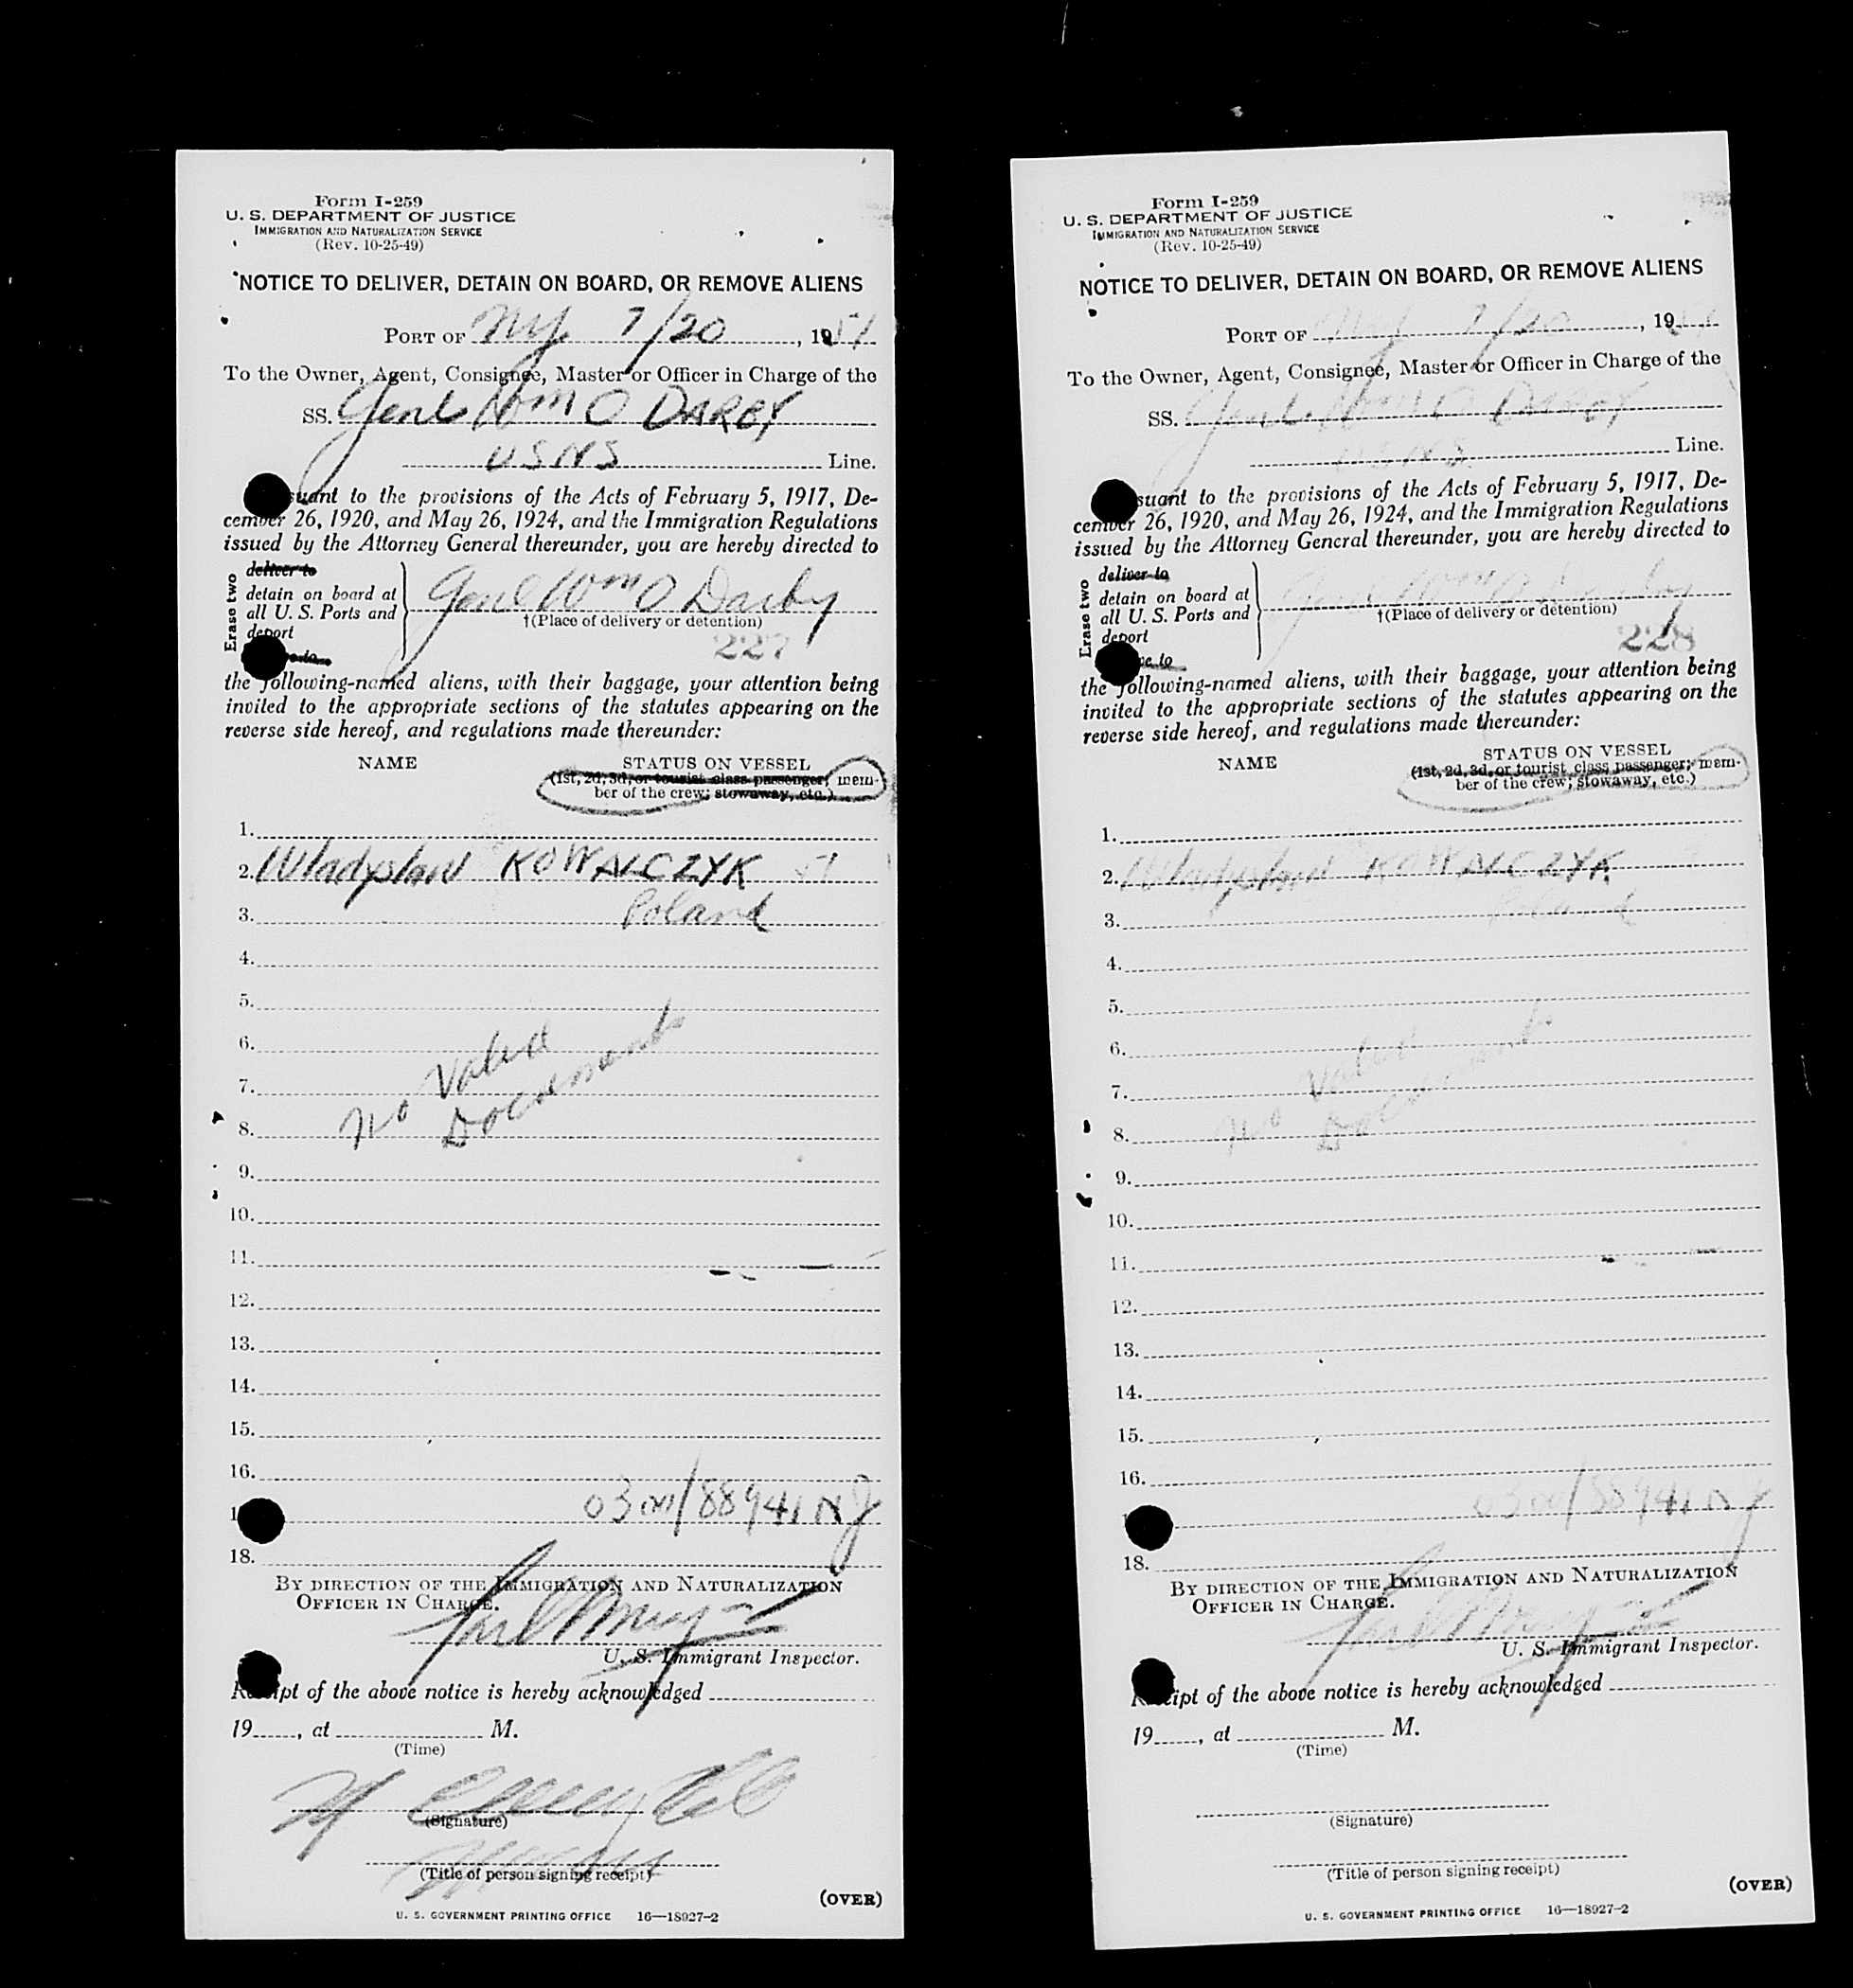 Form I-259
U. S. DEPARTMENT OF JUSTICE
IMMIGRATION AND NATURALIZATION SERVICE
(Rev. 10-25-49)
NOTICE TO DELIVER, DETAIN ON BOARD, OR REMOVE ALIENS
PORT OF NY 7/20, 1951
To the Owner, Agent, Consignee, Master or Officer in Charge of the
SS. Genl Wm O DARBY
USNS Line.
suant to the provisions of the Acts of February 5, 1917, De-
cember 26, 1920, and May 26, 1924, and the Immigration Regulations
issued by the Attorney General thereunder, you are hereby directed to
Erase two
deliver to
detain on board at
all U. S. Ports and
deport
Genl Wm O Darby
†(Place of delivery or detention)
227
the following-named aliens, with their baggage, your attention being
invited to the appropriate sections of the statutes appearing on the
reverse side hereof, and regulations made thereunder:
NAME STATUS ON VESSEL
(1st, 2d, 3d, or tourist class passenger; mem-
ber of the crew; stowaway, etc.)
1.
2. Wladyslaw KOWALCZYK 51
3. Poland
4.
5.
6.
7.
8.
No Valid
Documents
9.
10.
11.
12.
13.
14.
15.
16.
0300/88941 NJ
18.
BY DIRECTION OF THE IMMIGRATION AND NATURALIZATION
OFFICER IN CHARGE.
U. S. Immigrant Inspector.
Receipt of the above notice is hereby acknowledged
19, at M.
(Time)
(Signature)
(Title of person signing receipt)
(OVER)
U. S. GOVERNMENT PRINTING OFFICE 16—18927-2
Form I-259
U. S. DEPARTMENT OF JUSTICE
IMMIGRATION AND NATURALIZATION SERVICE
(Rev. 10-25-49)
NOTICE TO DELIVER, DETAIN ON BOARD, OR REMOVE ALIENS
PORT OF NY 7/20, 19
To the Owner, Agent, Consignee, Master or Officer in Charge of the
SS. Genl Wm O DARBY
USNS Line.
suant to the provisions of the Acts of February 5, 1917, De-
cember 26, 1920, and May 26, 1924, and the Immigration Regulations
issued by the Attorney General thereunder, you are hereby directed to
Erase two
deliver to
detain on board at
all U. S. Ports and
deport
Genl Wm O Darby
†(Place of delivery or detention)
228
the following-named aliens, with their baggage, your attention being
invited to the appropriate sections of the statutes appearing on the
reverse side hereof, and regulations made thereunder:
NAME STATUS ON VESSEL
(1st, 2d, 3d, or tourist class passenger; mem-
ber of the crew; stowaway, etc.)
1.
2. Wladyslaw KOWALCZYK
3. Poland
4.
5.
6.
7.
8.
No Valid
Documents
9.
10.
11.
12.
13.
14.
15.
16.
0300/88941 NJ
18.
BY DIRECTION OF THE IMMIGRATION AND NATURALIZATION
OFFICER IN CHARGE.
U. S. Immigrant Inspector.
Receipt of the above notice is hereby acknowledged
19, at M.
(Time)
(Signature)
(Title of person signing receipt)
(OVER)
U. S. GOVERNMENT PRINTING OFFICE 16—18927-2